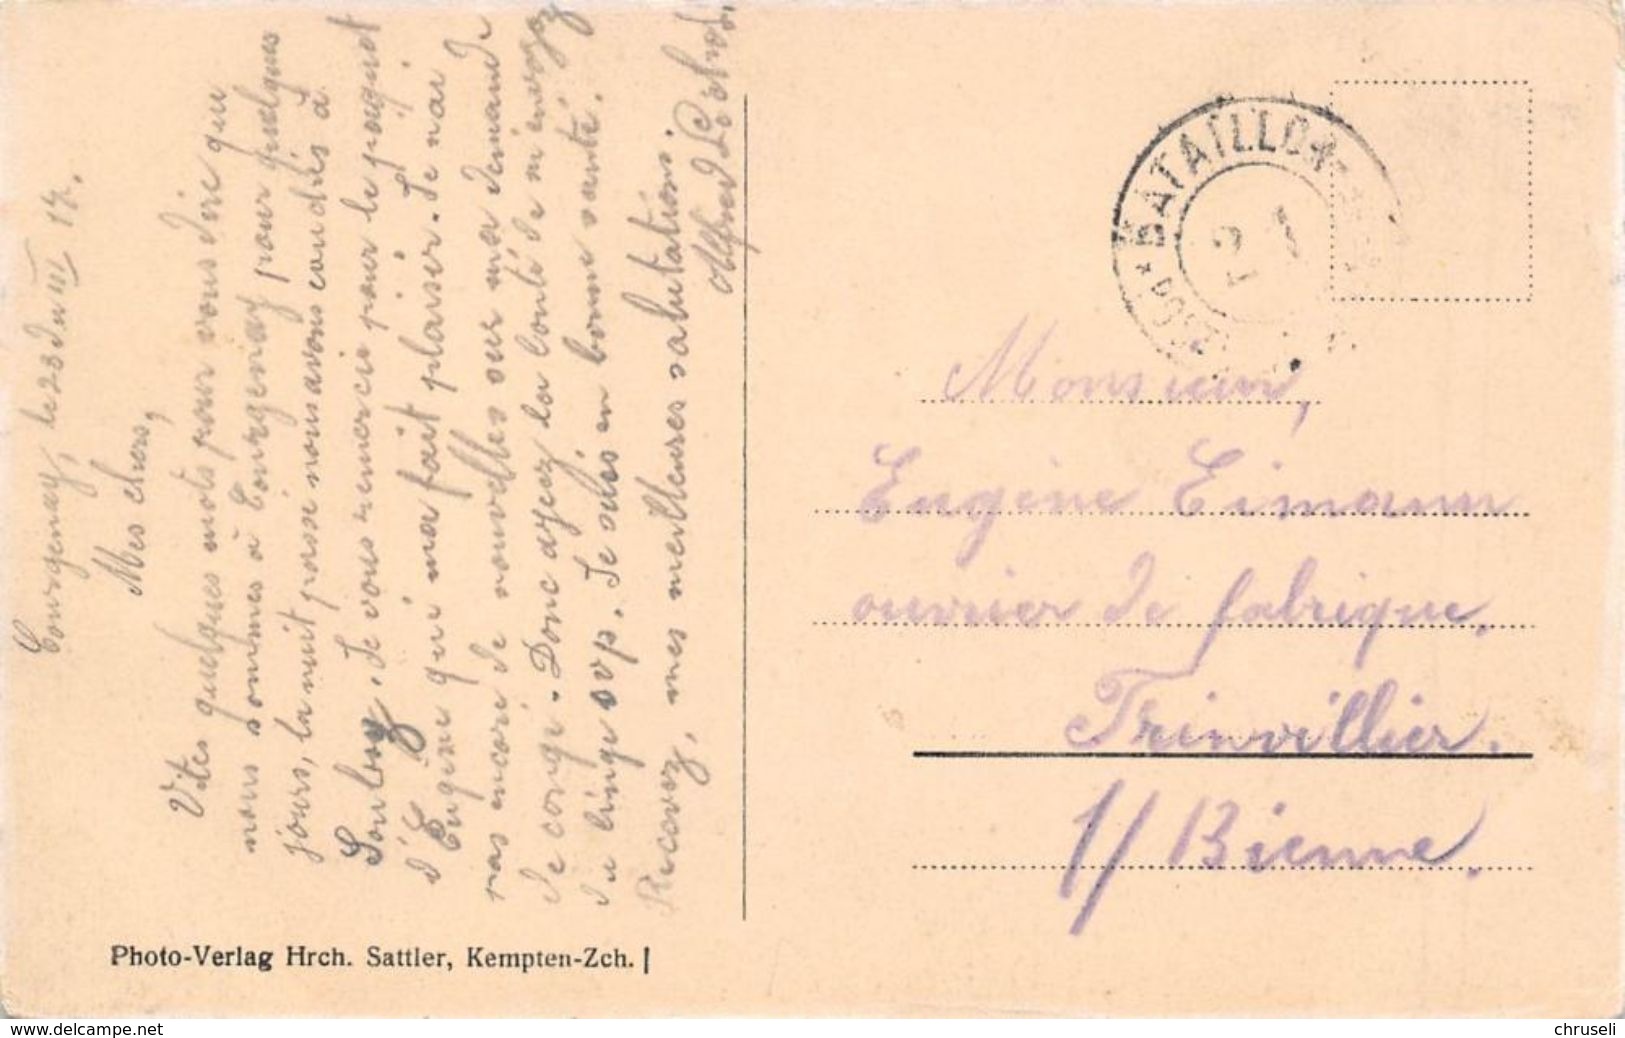 Courgenay, le 23 du III 17.
Mes chers,
Vites quelques mots pour vous dire que
nous sommes à Courgenay pour quelques
jours, la nuit passé nous avons couchés à
Soubey. Je vous remercie pour le paquet
d'Eugène qui m'a fait plaisir. Je n'ai
pas encore de nouvelles sur ma demande
de congé. Donc ayez la bonté de m'envoyez
du linge svp. Je suis en bonne santé.
Recevez, mes meilleures salutations.
Alfred
BATAILLON
Monsieur,
Eugène Eimann
ouvrier de fabrique,
Frinvillier.
s/ Bienne.
Photo-Verlag Hrch. Sattler, Kempten-Zch.
www.delcampe.net
chruseli